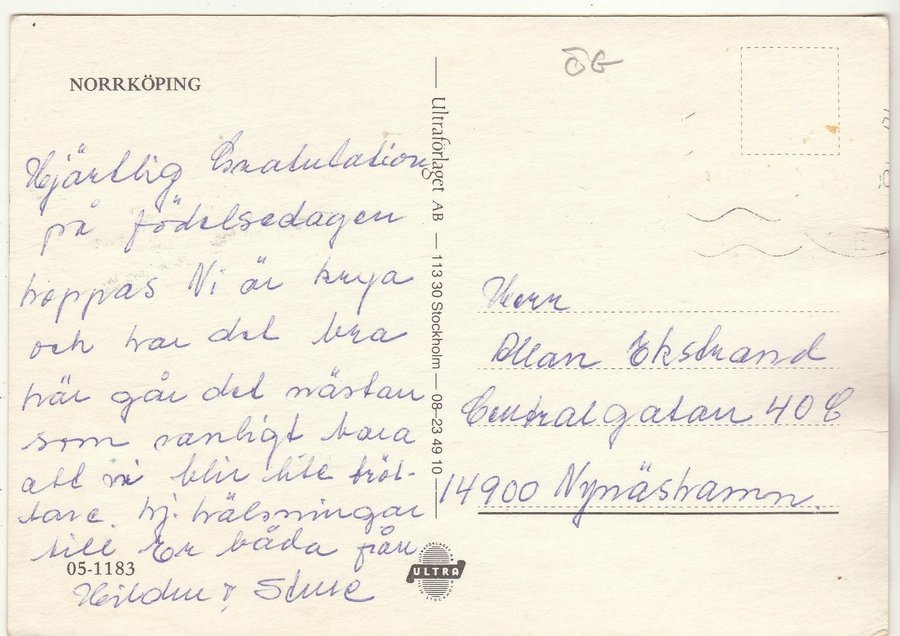 NORRKÖPING
ÖG
Hjärtlig Gratulation
på födelsedagen
hoppas Ni är krya
och har det bra
här går det nästan
som vanligt bara
att vi blir lite tröt-
tare. hj. hälsningar
till Er båda från
05-1183
& Sture
Ultraförlaget AB — 113 30 Stockholm — 08-23 49 10
ULTRA
Herr
Allan Ekstrand
Centralgatan 40 C
14900 Nynäshamn.